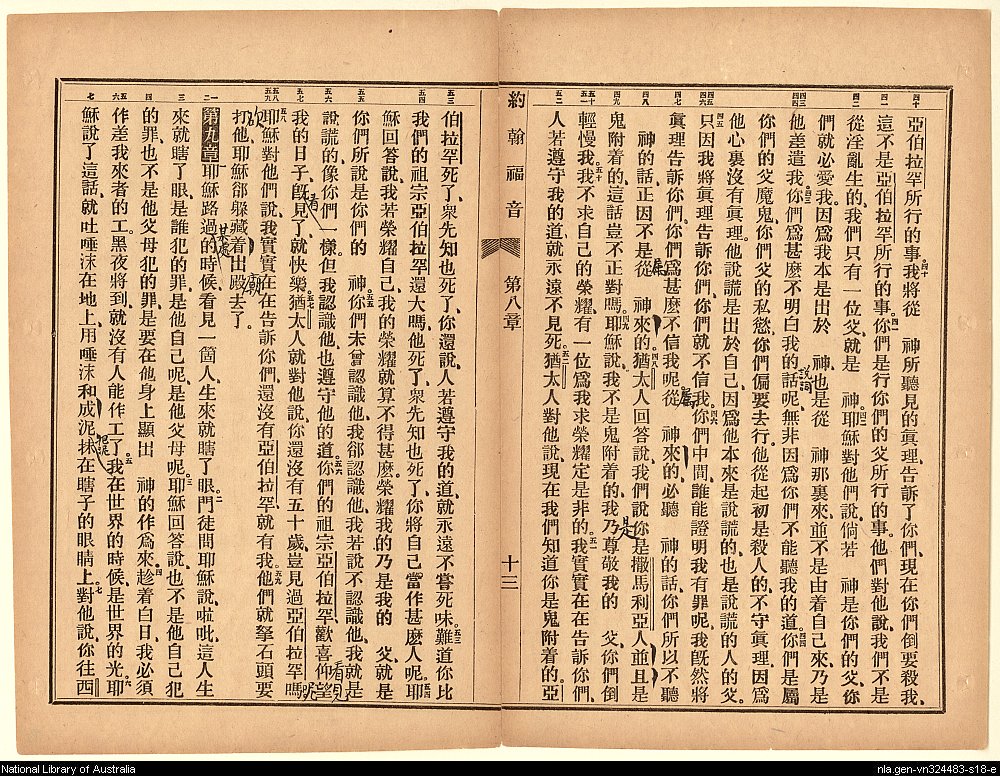 亞伯拉罕所行的事、我將從 神所聽見的眞理告訴了你們、現在你們倒要殺我、
這不是亞伯拉罕所行的事。你們是行你們的父所行的事。他們對他說、我們不是
從淫亂生的、我們只有一位父、就是 神。耶穌對他們說、倘若 神是你們的父、你
們就必愛我、因爲我本是出於 神、也是從 神那裏來、並不是由着自己來、乃是
他差遣我。你們爲甚麼不明白我的話呢、無非因爲你們不能聽我的道。你們是屬
你們的父魔鬼、你們父的私慾、你們偏要去行。他從起初是殺人的、不守眞理、因爲
他心裏沒有眞理。他說謊是出於自己、因爲他本來是說謊的、也是說謊的人的父。
只因我將眞理告訴你們、你們就不信我。你們中間誰能證明我有罪呢、我旣然將
眞理告訴你們、你們爲甚麼不信我呢。從 神來的、必聽 神的話、你們所以不聽
神的話、正因不是從 神來的。猶太人回答說、我們說你是撒馬利亞人、並且是
鬼附着的、這話豈不正對嗎。耶穌說、我不是鬼附着的、我乃尊敬我的 父、你們倒
輕慢我。我不求自己的榮耀、有一位爲我求榮耀、定是非的。我實實在在告訴你們、
人若遵守我的道、就永遠不見死。猶太人對他說、現在我們知道你是鬼附着的、亞
約翰福音 第八章 十三
伯拉罕死了、衆先知也死了、你還說、人若遵守我的道、就永遠不嘗死味。難道你比
我們的祖宗亞伯拉罕還大嗎、他死了、衆先知也死了、你將自己當作甚麼人呢。耶
穌回答說、我若榮耀自己、我的榮耀就算不得甚麼、榮耀我的、乃是我的 父、就是
你們所說是你們的 神。你們未曾認識他、我卻認識他、我若說不認識他、我就是
說謊的、像你們一樣、但我認識他、也遵守他的道。你們的祖宗亞伯拉罕歡喜仰望
我的日子、旣見了、就快樂。猶太人就對他說、你還沒有五十歲、豈見過亞伯拉罕嗎。
耶穌對他們說、我實實在在告訴你們、還沒有亞伯拉罕、就有我。他們就拏石頭要
打他、耶穌卻躱藏着出殿去了。
第九章 耶穌路過的時候、看見一箇人生來就瞎了眼。門徒問耶穌說、啦吡、這人生
來就瞎了眼、是誰犯的罪、是他自己呢、是他父母呢。耶穌回答說、也不是他自己犯
的罪、也不是他父母犯的罪、是要在他身上顯出 神的作爲來。趁着白日、我必須
作差我來者的工、黑夜將到、就沒有人能作工了。我在世界的時候、是世界的光。耶
穌說了這話、就吐唾沫在地上、用唾沫和成泥、抹在瞎子的眼睛上。對他說、你往西
National Library of Australia
nla.gen-vn324483-s18-e